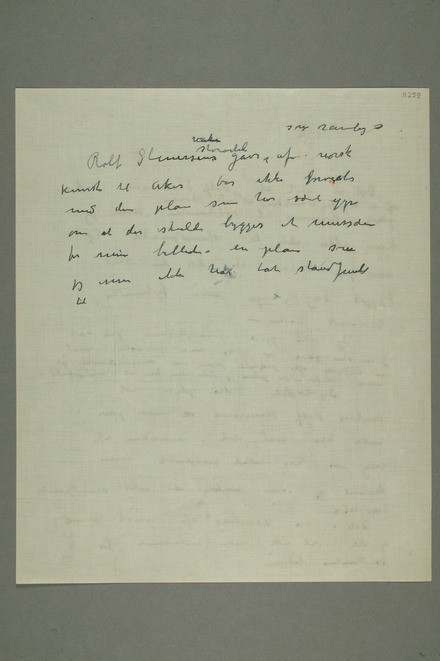 Rolf Stenersens gave af norsk
kunst til Aker bør ikke forveksles
med den plan som har været oppe
om at der skulde bygges et museum
for mine billeder en plan som
jeg ennu ikke har tat standpunkt
til